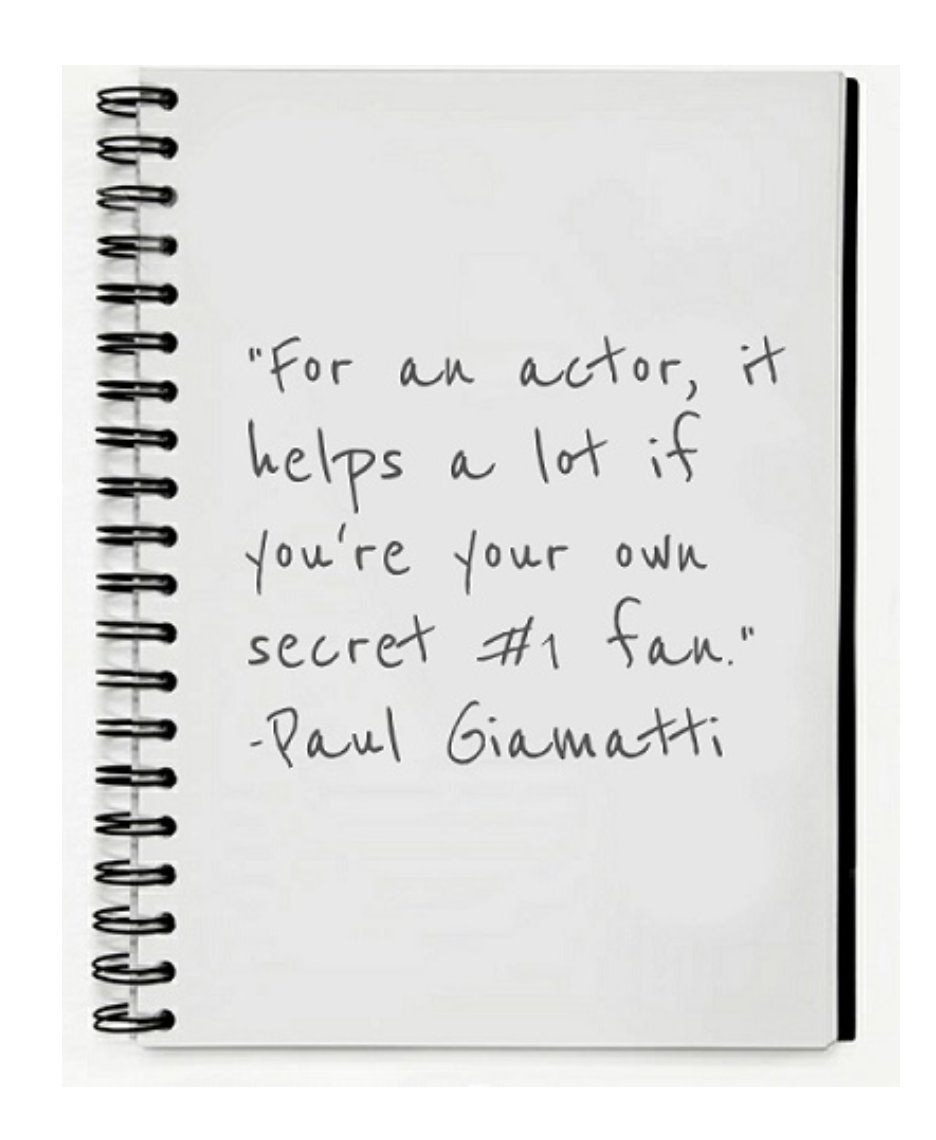 "For an actor, it
helps a lot if
you're your own
secret #1 fan."
-Paul Giamatti